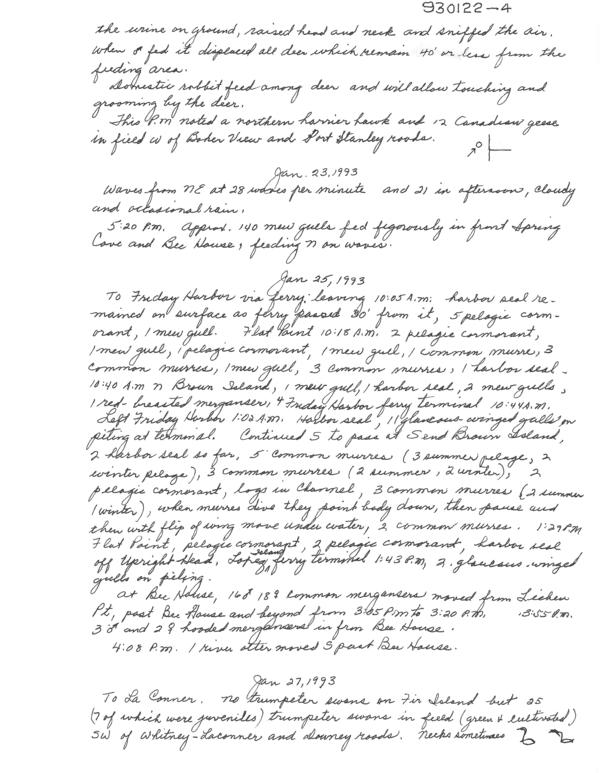 930122-4
the urine on ground, raised head and neck and sniffed the air.
When ♂ fed it displaced all deer which remain 40' or less from the
feeding area.
Domestic rabbit feed among deer and will allow touching and
grooming by the deer.
This P.M noted a northern harrier hawk and 12 Canadian geese
in field W of Baker View and Port Stanley roads.
Jan. 23, 1993
Waves from NE at 28 waves per minute and 21 in afternoon, cloudy
and occasional rain.
5:20 P.M. Approx. 140 mew gulls fed figorously in front Spring
Cove and Bee House, feeding N on waves.
Jan 25, 1993
To Friday Harbor via ferry; leaving 10:05 A.M. harbor seal re-
mained on surface as ferry passed 30' from it, 5 pelagic corm-
orant, 1 mew gull. Flat Point 10:18 A.M. 2 pelagic cormorant,
1 mew gull, 1 pelagic cormorant, 1 mew gull, 1 common murre, 3
common murres, 1 mew gull, 3 common murres, 1 harbor seal -
10:40 A.M N Brown Island, 1 mew gull, 1 harbor seal, 2 mew gulls,
1 red-breasted merganser, Friday Harbor ferry terminal 10:44 A.M.
Left Friday Harbor 1:02 A.M. Harbor seal, 11 glaucous winged gulls on
piling at terminal. Continued S to pass at S end Brown Island,
2 harbor seal so far, 5 common murres (3 summer pelage, 2
winter pelage), 3 common murres (2 summer, 2 winter), 2
pelagic cormorant, logs in Channel, 3 common murres (2 summer
1 winter), when murres dive they point body down, then pause and
then with flip of wing move under water, 2 common murres. 1:29 P.M
Flat Point, pelagic cormorant, 2 pelagic cormorant, harbor seal
off Upright Head, Lopez Island ferry terminal 1:43 P.M, 2 glaucous-winged
gulls on piling.
At Bee House, 16♂ 18♀ common mergansers moved from Lichen
Pt, past Bee House and beyond from 3:05 P.m to 3:20 P.M. 3:55 P.m.
3♂ and 2♀ hooded mergansers in fron Bee House.
4:08 P.M. 1 river otter moved S past Bee House.
Jan 27, 1993
To La Conner. No trumpeter swans on Fir Island but 25
(7 of which were juveniles) trumpeter swans in field (green & cultivated)
SW of Whitney-Laconner and Downey roads. Necks sometimes